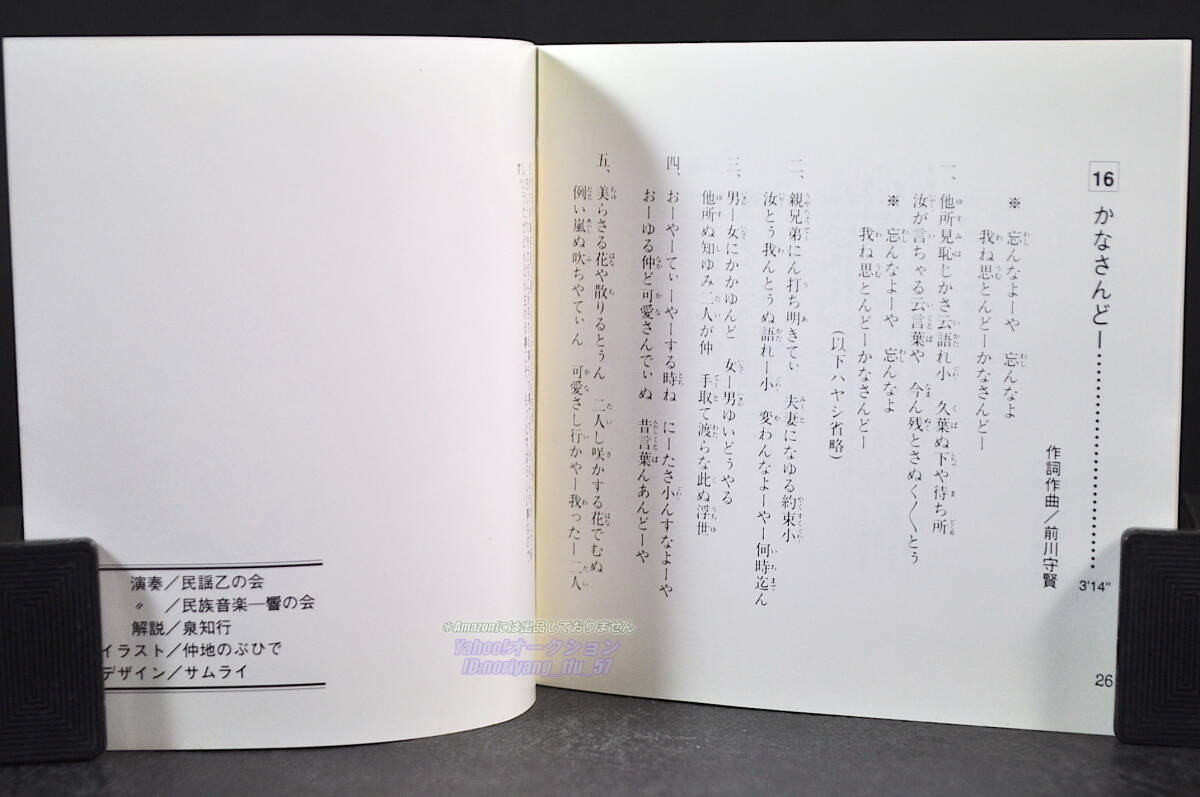 16 かなさんどー…………………………… 3'14"
作詞作曲／前川守賢
※ 忘んなよーや 忘んなよ
我ね思とんどーかなさんどー
一、他所見恥じかさ云語れ小 久葉ぬ下や待ち所
汝が言ちゃる云言葉や 今ん残とさぬくくとぅ
※ 忘んなよーや 忘んなよ
我ね思とんどーかなさんどー
(以下ハヤシ省略)
二、親兄弟にん打ち明きてぃ 夫妻になゆる約束小
汝とぅ我んとぅぬ語れー小 変わんなよーやー何時迄ん
三、男ー女にかかゆんど 女ー男ゆいどぅやる
他所ぬ知ゆみ二人が仲 手取て渡らな此ぬ浮世
四、おーやーてぃーやーする時ね にーたさ小んすなよーや
おーゆる仲ど可愛さんでぃぬ 昔言葉んあんどーや
五、美らさる花や散りるとぅん 二人し咲かする花でむぬ
例い嵐ぬ吹ちやてぃん 可愛さし行かやー我ったー二人
26
演奏／民謡乙の会
〃 ／民族音楽―響の会
解説／泉知行
イラスト／仲地のぶひで
デザイン／サムライ
※Amazonには出品しておりません
Yahoo!オークション
ID:noriyang_tfu_57